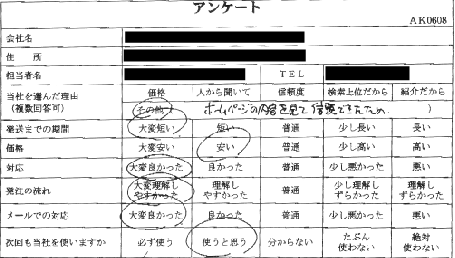 アンケート
AK0608
会社名
住 所
担当者名 TEL
当社を選んだ理由 価格 人から聞いて 信頼度 検索上位だから 紹介だから
(複数回答可) その他( ホームページの内容を見て信頼できたため )
発送までの期間 大変短い 短い 普通 少し長い 長い
価格 大変安い 安い 普通 少し高い 高い
対応 大変良かった 良かった 普通 少し悪かった 悪い
発注の流れ 大変理解しやすかった 理解しやすかった 普通 少し理解しずらかった 理解しずらかった
メールでの対応 大変良かった 良かった 普通 少し悪かった 悪い
次回も当社を使いますか 必ず使う 使うと思う 分からない たぶん使わない 絶対使わない